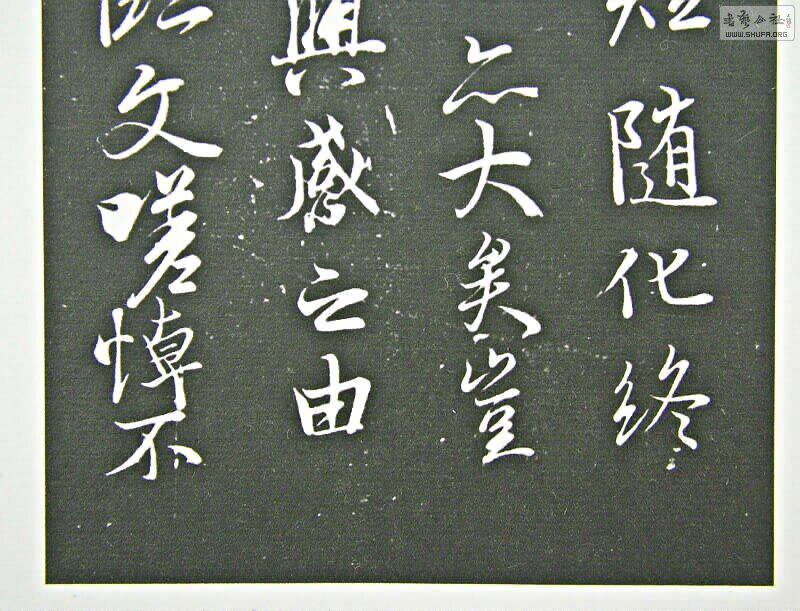 短随化终
亦大矣岂
興感之由
臨文嗟悼不
书艺公社
WWW.SHUFA.ORG